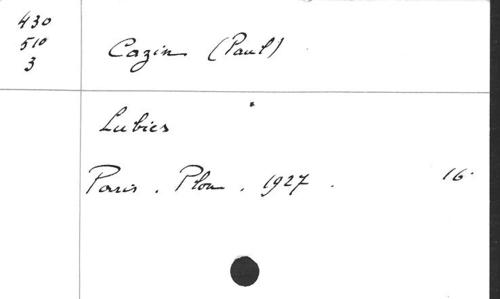 430
510
3
Cazin (Paul)
Lubies
Paris. Plon. 1927. 16°